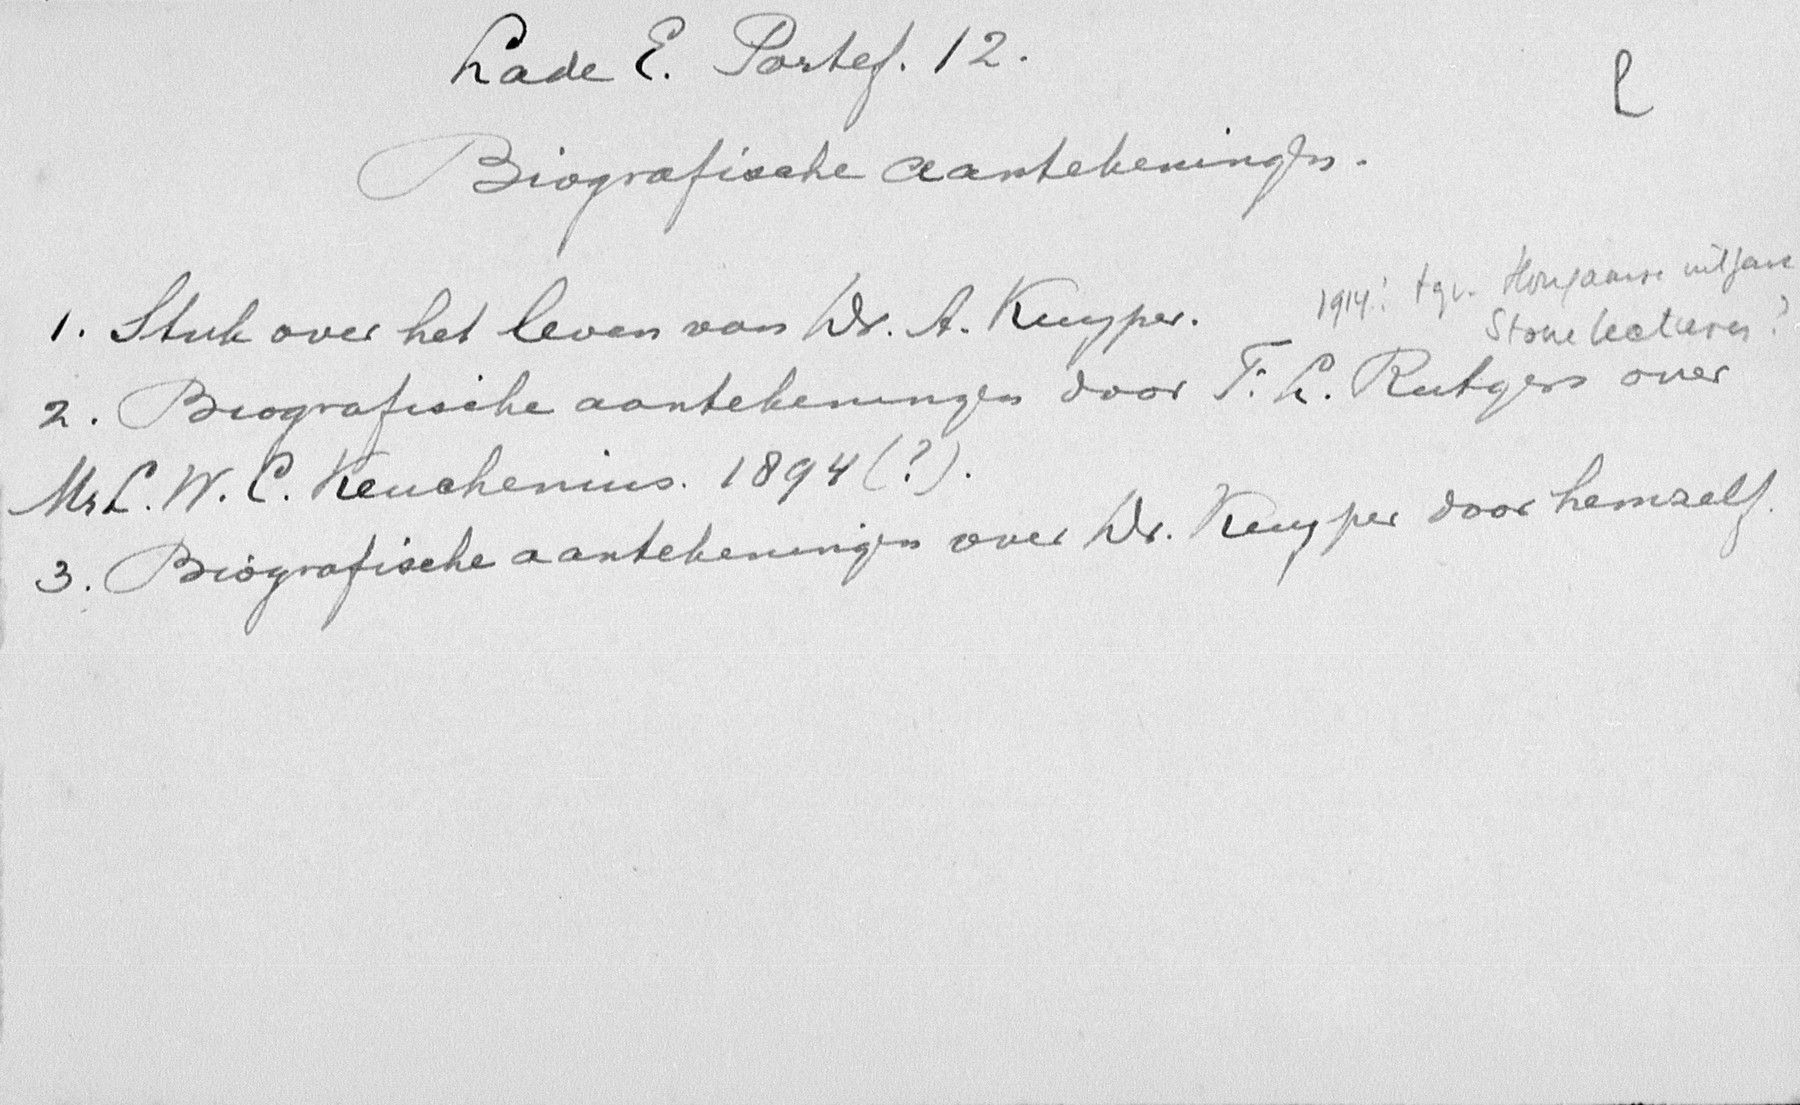 Lade E. Portef. 12.
Biografische aantekeningen.
1. Stuk over het leven van Dr. A. Kuyper.
1914? t.g.v. Hongaarse uitgave
Stone lectures?
2. Biografische aantekeningen door F. L. Rutgers over
Mr L. W. C. Keuchenius. 1894 (?).
3. Biografische aantekeningen over Dr. Kuyper door hemzelf.